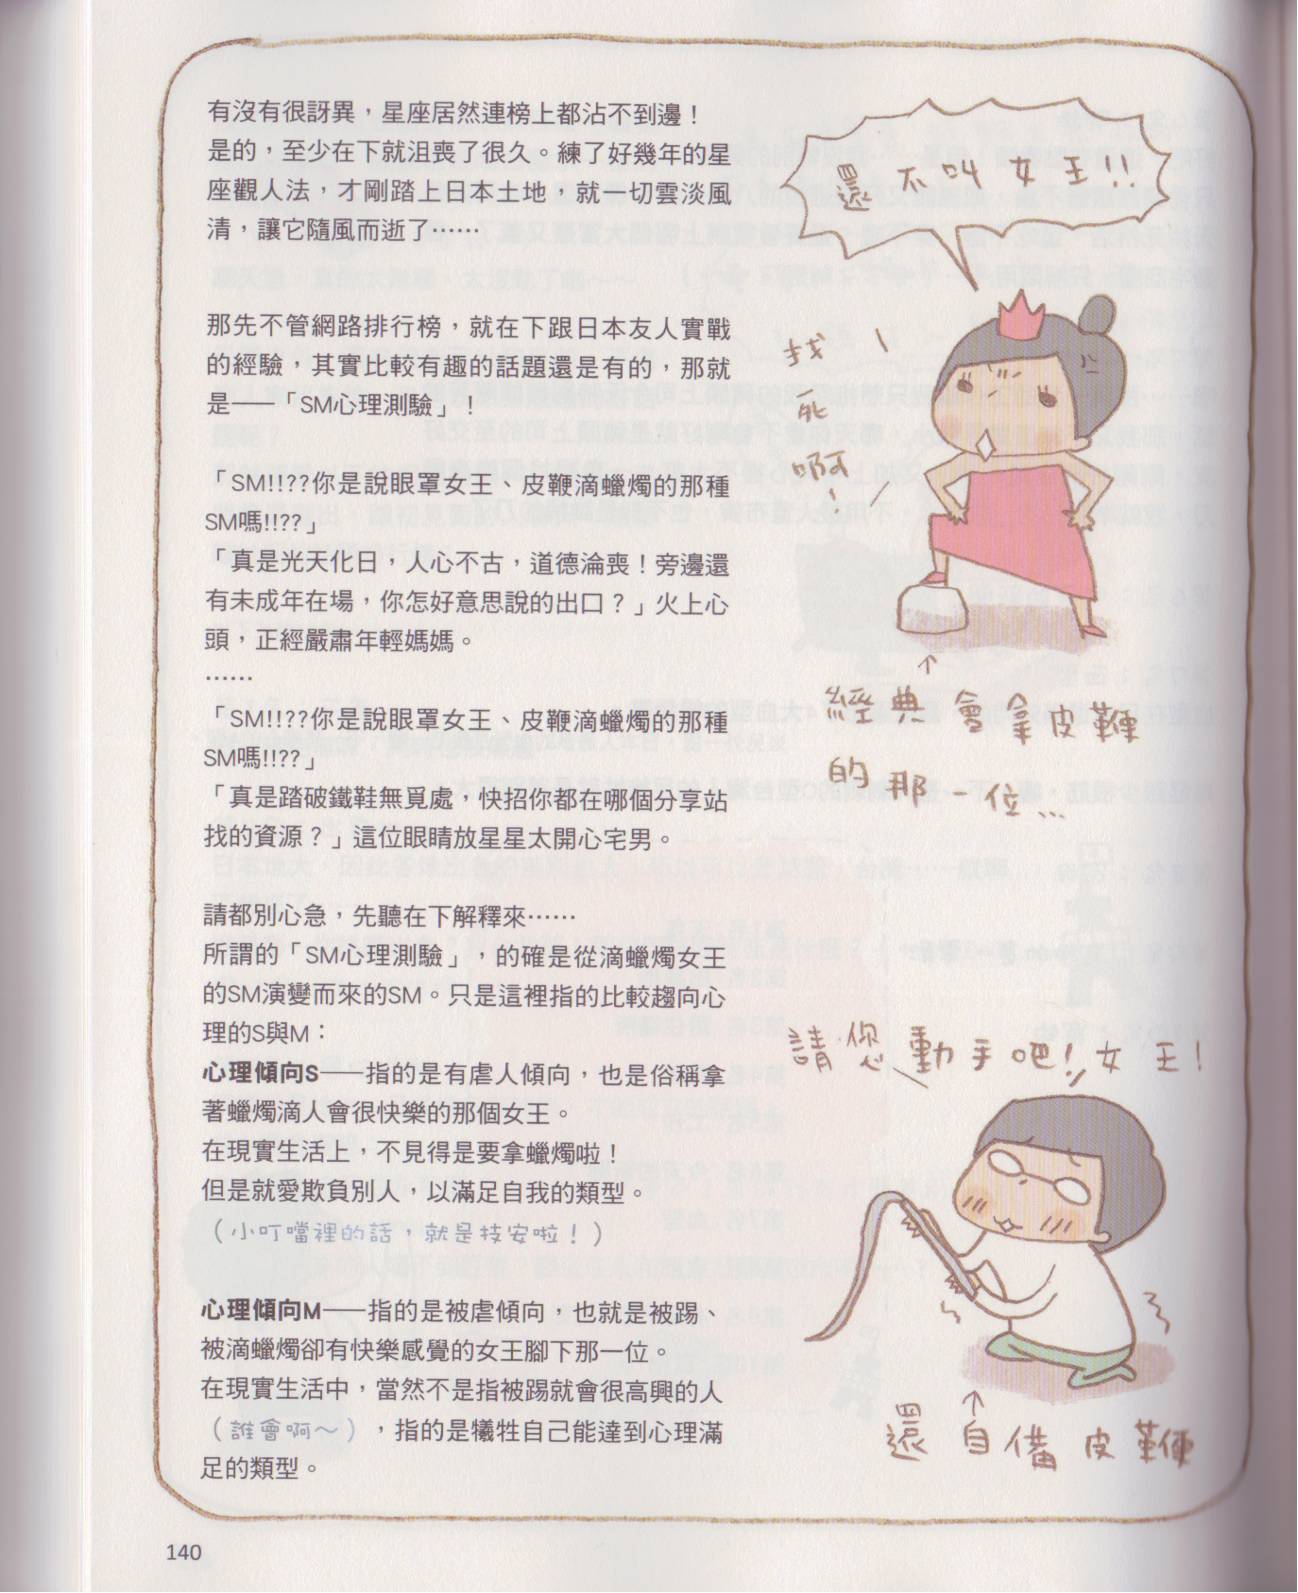 有沒有很訝異，星座居然連榜上都沾不到邊！
是的，至少在下就沮喪了很久。練了好幾年的星
座觀人法，才剛踏上日本土地，就一切雲淡風
清，讓它隨風而逝了⋯⋯
那先不管網路排行榜，就在下跟日本友人實戰
的經驗，其實比較有趣的話題還是有的，那就
是——「SM心理測驗」！
「SM!!??你是說眼罩女王、皮鞭滴蠟燭的那種
SM嗎!!??」
「真是光天化日，人心不古，道德淪喪！旁邊還
有未成年在場，你怎好意思說的出口？」火上心
頭，正經嚴肅年輕媽媽。
⋯⋯
「SM!!??你是說眼罩女王、皮鞭滴蠟燭的那種
SM嗎!!??」
「真是踏破鐵鞋無覓處，快招你都在哪個分享站
找的資源？」這位眼睛放星星太開心宅男。
請都別心急，先聽在下解釋來⋯⋯
所謂的「SM心理測驗」，的確是從滴蠟燭女王
的SM演變而來的SM。只是這裡指的比較趨向心
理的S與M：
心理傾向S——指的是有虐人傾向，也是俗稱拿
著蠟燭滴人會很快樂的那個女王。
在現實生活上，不見得是要拿蠟燭啦！
但是就愛欺負別人，以滿足自我的類型。
（小叮噹裡的話，就是技安啦！）
心理傾向M——指的是被虐傾向，也就是被踢、
被滴蠟燭卻有快樂感覺的女王腳下那一位。
在現實生活中，當然不是指被踢就會很高興的人
（誰會啊～），指的是犧牲自己能達到心理滿
足的類型。
還不叫女王!!
找
死
啊
經典會拿皮鞭
的那一位...
請您動手吧！女王！
還自備皮鞭
140